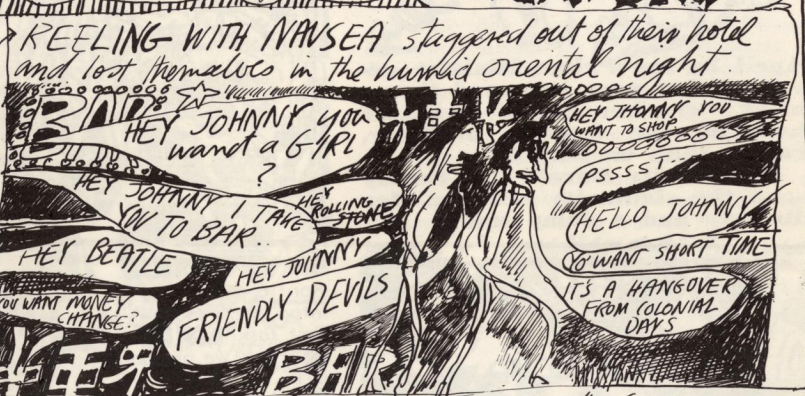 REELING WITH NAUSEA staggered out of their hotel
and lost themselves in the humid oriental night.
BAR
HEY JOHNNY you
want a GIRL
?
HEY JOHNNY I TAKE
YOU TO BAR..
HEY
ROLLING
STONE
HEY BEATLE
HEY JOHNNY
YOU WANT MONEY
CHANGE?
FRIENDLY DEVILS
BAR
HEY JHONNY YOU
WANT TO SHOP
PSSSST...
HELLO JOHNNY
YO WANT SHORT TIME
IT'S A HANGOVER
FROM COLONIAL
DAYS